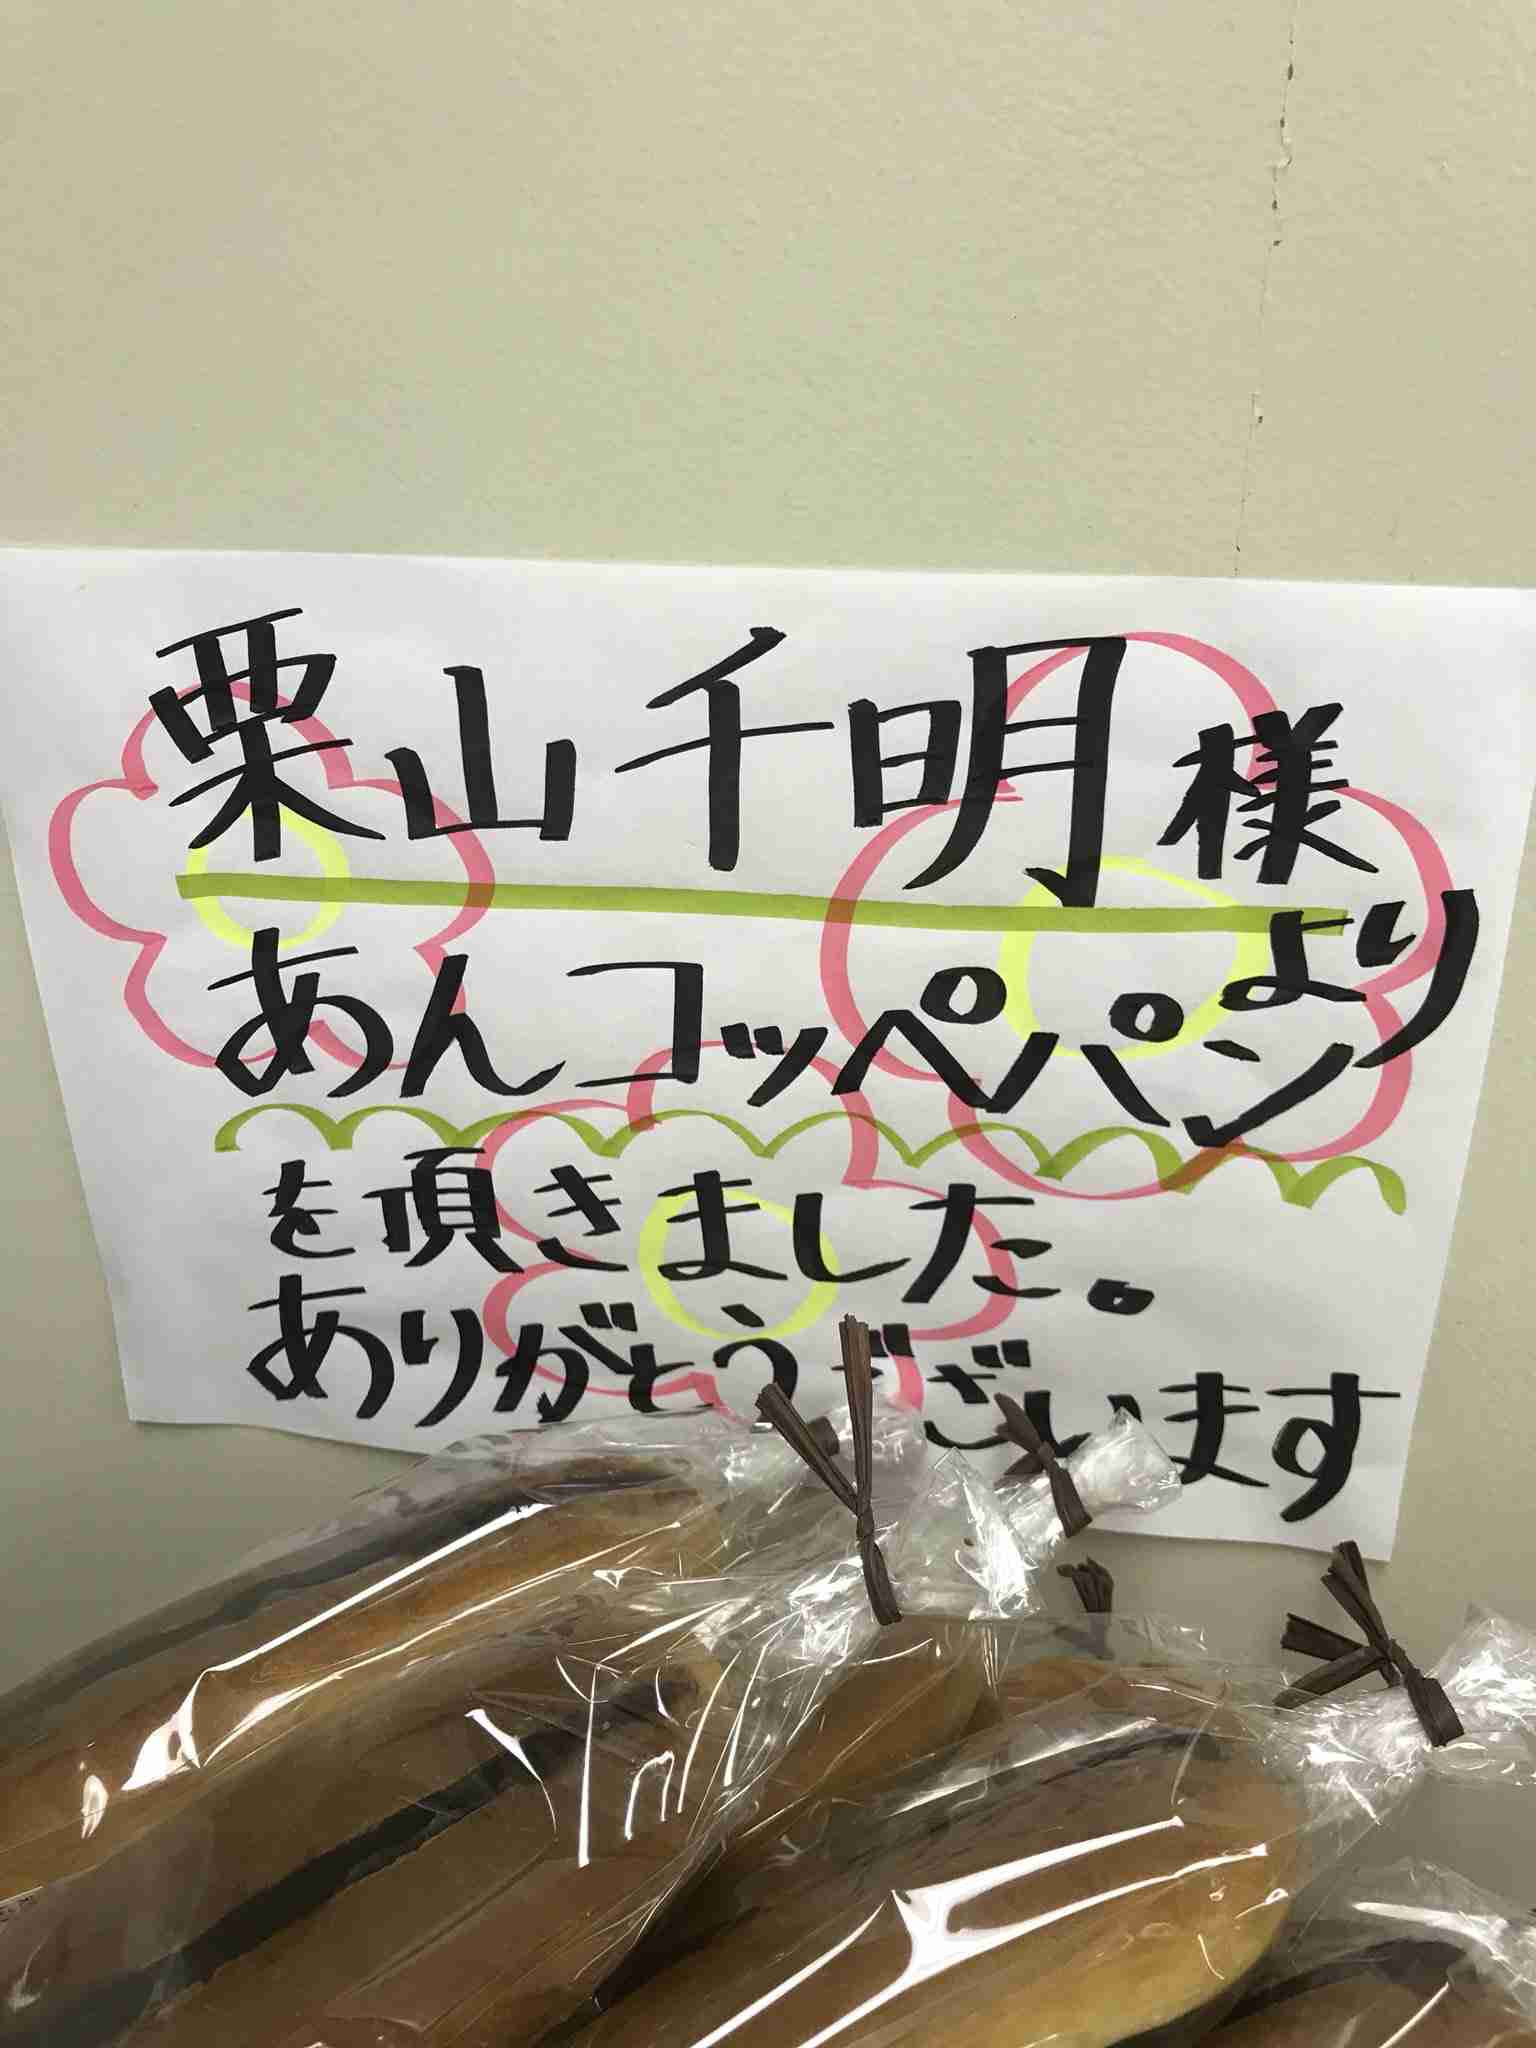 栗山千明様
より
あんコッペパン
を頂きました。
ありがとうございます